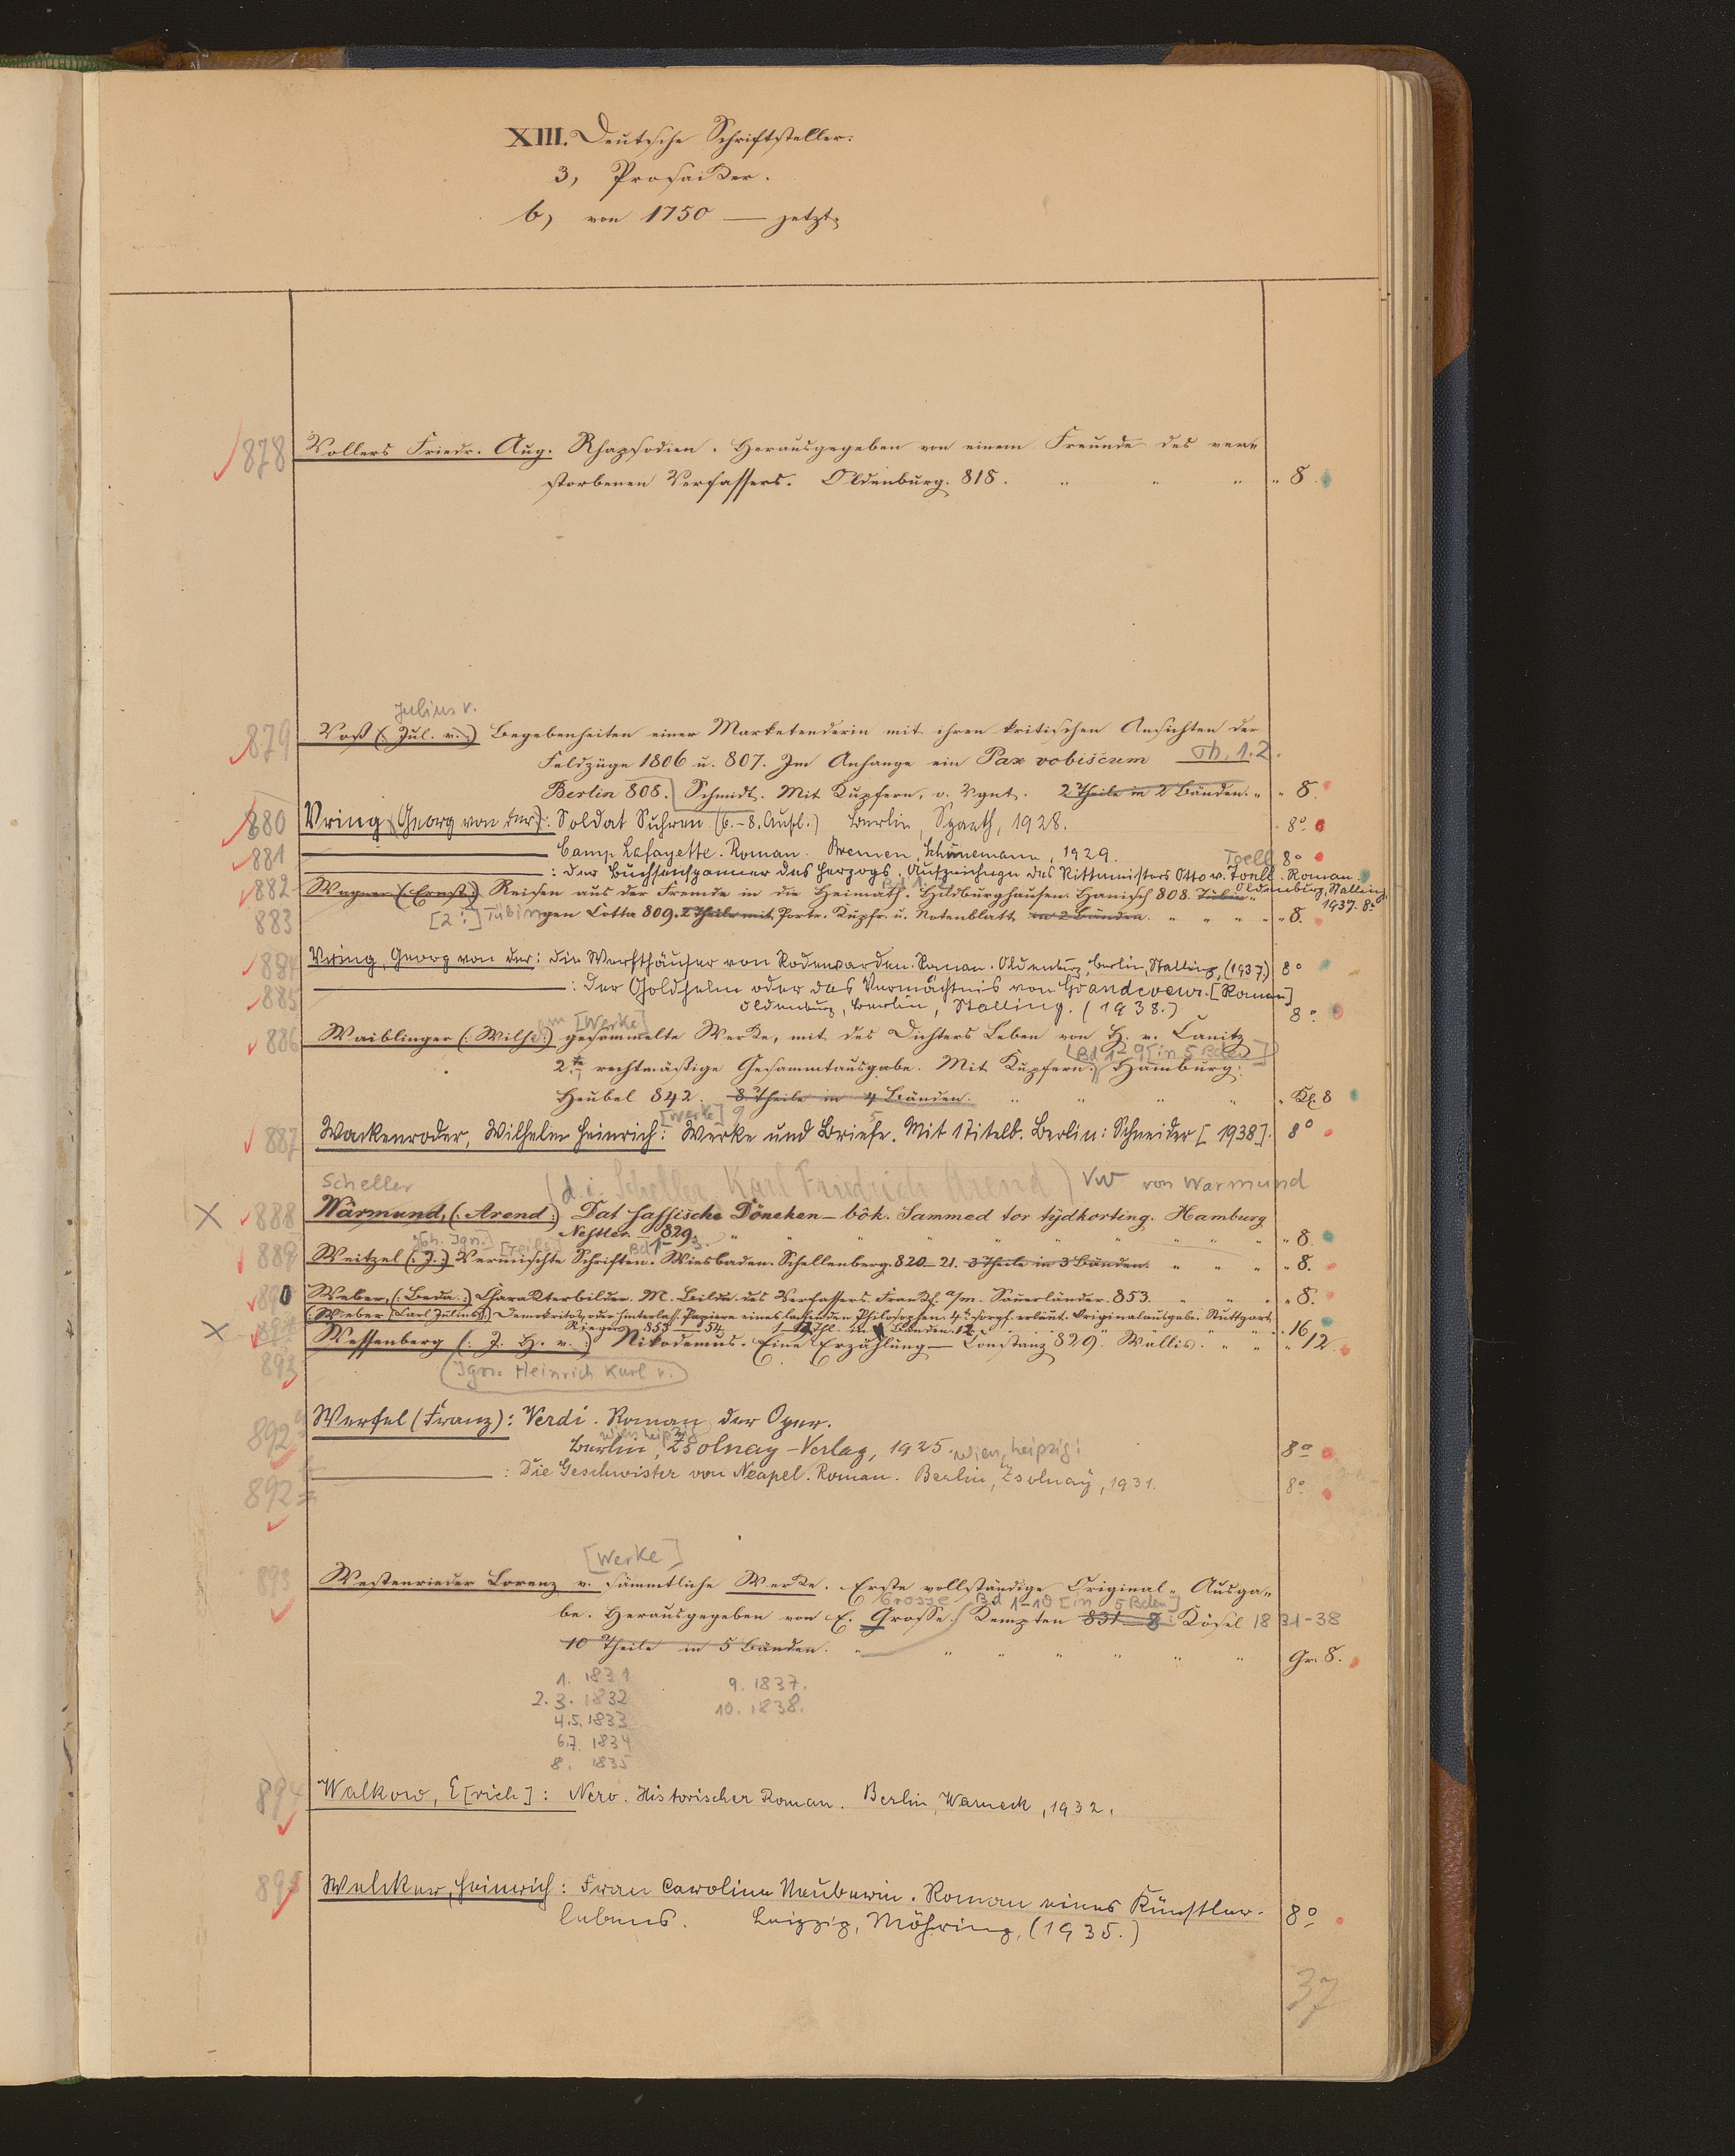 XIII. Deutsche Schriftsteller.
3, Prosaiker.
b, von 1750 — jetzt.
878 Vollers Friedr. Aug. Rhapsodien. Herausgegeben von einem Freunde des ver-
storbenen Verfassers. Oldenburg. 818. " " " " 8.
Julius v.
879 Voß (: Jul. v. :) Begebenheiten einer Marketenderin mit ihren kritischen Ansichten der
Feldzüge 1806 u. 807. Im Anhange ein Pax vobiscum Th. 1.2.
Berlin 808. Schmidt. Mit Kupfern, v. Vgnt. 2 Theile in 2 Bänden. " " 8.
880 Vring (Georg von der): Soldat Suhren (6.-8. Aufl.) Berlin, Spaeth, 1928. 8°
881 Camp Lafayette. Roman. Bremen, Schünemann, 1929. 8°
Toell
: Der Büchsenspanner des Herzogs. Aufzeichngn des Rittmeisters Otto v. Toell. Roman.
Oldenburg, Stalling
1937. 8°
Bd 1.
882 Wagner (: Ernst :) Reisen aus der Fremde in die Heimath. Hildburghausen. Hanisch 808. Tübin-
883 [2:] Tübingen Cotta 809. 2 Theile mit Portr. Kupfr. u. Notenblatt in 2 Bänden. " " " " 8.
884 Vring, Georg von der: Die Werfthäuser von Rodewarden. Roman. Oldenburg, Berlin, Stalling, (1937.) 8°
885 : Der Goldhelm oder das Vermächtnis von Grandcoeur. [Roman]
Oldenburg, Berlin, Stalling. (1938.) 8°
[Werke]
886 Waiblinger (: Wilh. :) gesammelte Werke, mit des Dichters Leben von H. v. Canitz
(Bd 1-9 [in 5 Bden]
2te rechtmäßige Gesammtausgabe. Mit Kupfern. Hamburg.
Heubel 842. 8 Theile in 4 Bänden. " " " " " Kl. 8
[Werke] 9 5
887 Wackenroder, Wilhelm Heinrich: Werke und Briefe. Mit 1 Titelb. Berlin: Schneider [1938]. 8°
Scheller (d. i. Scheller, Karl Friedrich Arend) VW von Warmund
888 Wärmund, (: Arend :) Dat sassische Döneken-bôk. Sammed tor tydkorting. Hamburg
Nestler. 829. " " " " " " 8.
Joh. Ign. [Teils] Bd 1-3
889 Weitzel (: J. :) Vermischte Schriften. Wiesbaden. Schellenberg. 820-21. 3 Theile in 3 Bänden. " " " " 8.
890 Weber, (: Beda :) Charakterbilder. M. Bildn. des Verfassers. Frankf. a/m. Sauerländer. 853. " " " 8.
(Weber (Carl Julius:) Demokritos, oder hinterlass. Papiere eines lachenden Philosophen. 4te sorgf. erläut. Originalausgabe. Stuttgart
Rieger. 853-54. 12 Thl. in Bänden. 12. " " " 16
Wessenberg (: J. H. v. :) Nikodemus. Eine Erzählung — Constanz 829. Wallis. " " " 12.
893 (Ign. Heinrich Karl v.)
892 Werfel (Franz): Verdi. Roman der Oper.
Wien Leipzig
Berlin, Zsolnay-Verlag, 1925. Wien, Leipzig: 8°
892 : Die Geschwister von Neapel. Roman. Berlin, Zsolnay, 1931. 8°
[Werke]
893 Westenrieder Lorenz v. sämmtliche Werke. Erste vollständige Original-Ausga-
Grosse Bd 1-10 [in 5 Bden]
be. Herausgegeben von E. Grosse. Kempten 831-8 Kösel 1831-38
10 Theile in 5 Bänden. " " " " " " " Gr. 8.
1. 1831 9. 1837.
2. 3. 1832 10. 1838.
4.5. 1833
6.7. 1834
8. 1835
894 Walkow, E[rich]: Nero. Historischer Roman. Berlin, Warneck, 1932.
895 Welcker, Heinrich: Frau Caroline Neuberin. Roman eines Künstler-
lebens. Leipzig, Möhring, (1935.) 8°
37